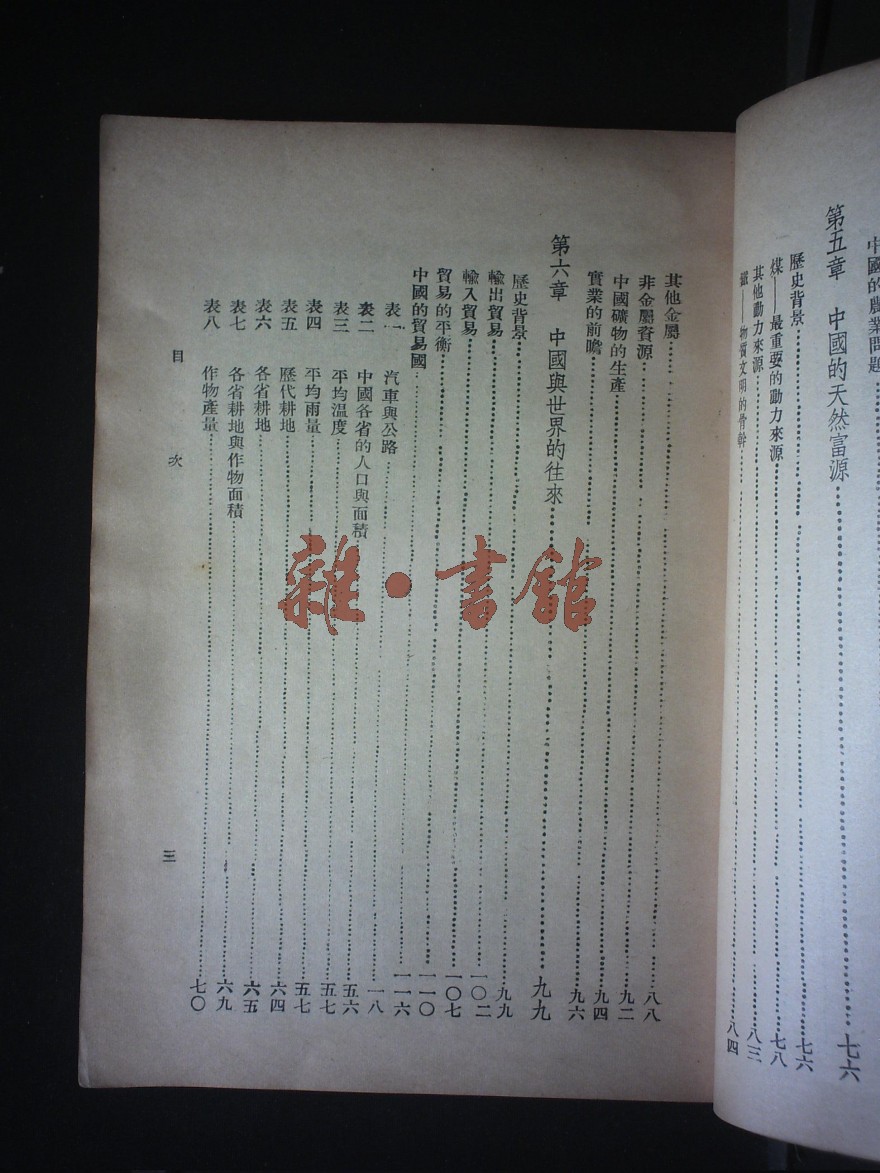 中國的農業問題
第五章 中國的天然富源……七六
歷史背景……七六
煤——最重要的動力來源……七八
其他動力來源……八三
鐵——物質文明的骨幹……八四
其他金屬……八八
非金屬資源……九二
中國礦物的生產……九四
實業的前瞻……九六
第六章 中國與世界的往來……九九
歷史背景……九九
輸出貿易……一〇二
輸入貿易……一〇七
貿易的平衡……一一〇
中國的貿易國……一一六
表一 汽車與公路……一八
表二 中國各省的人口與面積……五六
表三 平均溫度……五七
表四 平均雨量……五七
表五 歷代耕地……六四
表六 各省耕地……六五
表七 各省耕地與作物面積……六九
表八 作物產量……七〇
目次
三
雜·書館